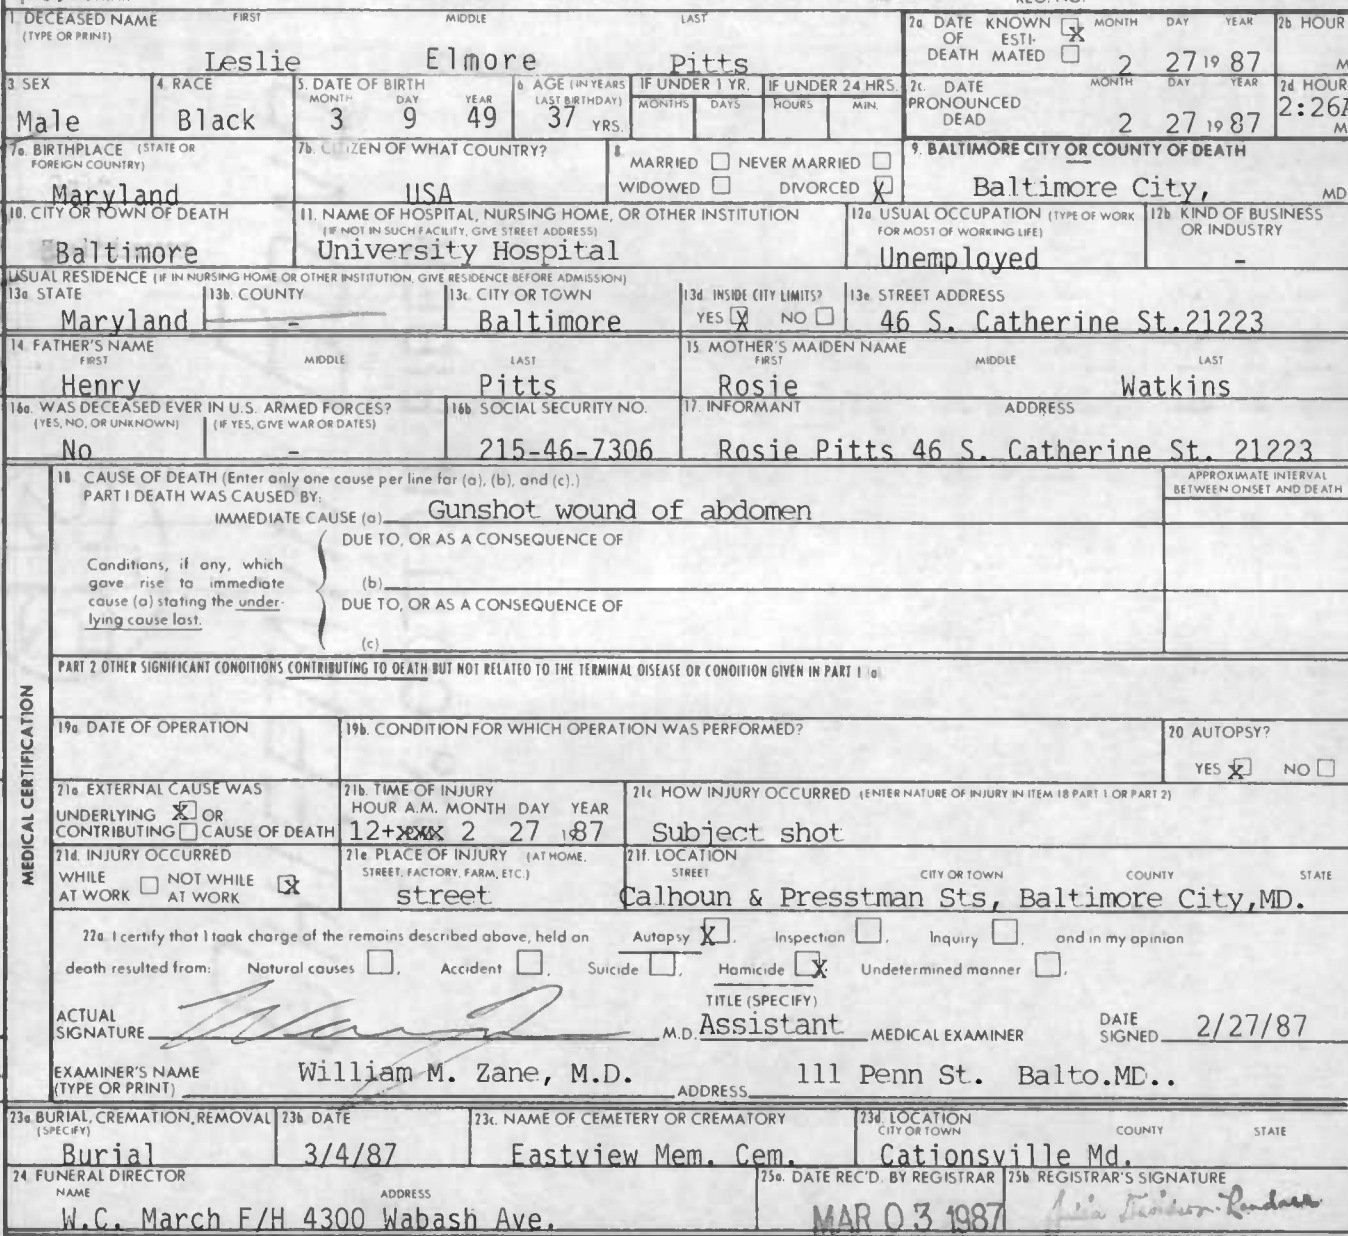 1. DECEASED NAME FIRST MIDDLE LAST
(TYPE OR PRINT)
Leslie Elmore Pitts
2a. DATE KNOWN X MONTH DAY YEAR
OF ESTI-
DEATH MATED
2 27 19 87
2b HOUR
M
3 SEX
Male
4 RACE
Black
5. DATE OF BIRTH
MONTH DAY YEAR
3 9 49
6 AGE (IN YEARS
LAST BIRTHDAY)
37 YRS.
IF UNDER 1 YR.
MONTHS DAYS
IF UNDER 24 HRS.
HOURS MIN.
2c. DATE MONTH DAY YEAR
PRONOUNCED
DEAD
2 27 19 87
2d HOUR
2:26A
M
7a. BIRTHPLACE (STATE OR
FOREIGN COUNTRY)
Maryland
7b. CITIZEN OF WHAT COUNTRY?
USA
8
MARRIED NEVER MARRIED
WIDOWED DIVORCED X
9. BALTIMORE CITY OR COUNTY OF DEATH
Baltimore City, MD
10. CITY OR TOWN OF DEATH
Baltimore
11. NAME OF HOSPITAL, NURSING HOME, OR OTHER INSTITUTION
(IF NOT IN SUCH FACILITY, GIVE STREET ADDRESS)
University Hospital
12a USUAL OCCUPATION (TYPE OF WORK
FOR MOST OF WORKING LIFE)
Unemployed
12b KIND OF BUSINESS
OR INDUSTRY
-
USUAL RESIDENCE (IF IN NURSING HOME OR OTHER INSTITUTION, GIVE RESIDENCE BEFORE ADMISSION)
13a STATE
Maryland
13b. COUNTY
-
13c CITY OR TOWN
Baltimore
13d INSIDE CITY LIMITS?
YES X NO
13e STREET ADDRESS
46 S. Catherine St.21223
14 FATHER'S NAME
FIRST MIDDLE LAST
Henry Pitts
15. MOTHER'S MAIDEN NAME
FIRST MIDDLE LAST
Rosie Watkins
16a. WAS DECEASED EVER IN U.S. ARMED FORCES?
(YES, NO, OR UNKNOWN) (IF YES, GIVE WAR OR DATES)
No -
16b SOCIAL SECURITY NO.
215-46-7306
17. INFORMANT ADDRESS
Rosie Pitts 46 S. Catherine St. 21223
MEDICAL CERTIFICATION
18 CAUSE OF DEATH (Enter only one cause per line for (a), (b), and (c).)
PART I DEATH WAS CAUSED BY:
IMMEDIATE CAUSE (a) Gunshot wound of abdomen
APPROXIMATE INTERVAL
BETWEEN ONSET AND DEATH
DUE TO, OR AS A CONSEQUENCE OF
Conditions, if any, which
gave rise to immediate
cause (a) stating the under-
lying cause last.
(b)
DUE TO, OR AS A CONSEQUENCE OF
(c)
PART 2 OTHER SIGNIFICANT CONDITIONS CONTRIBUTING TO DEATH BUT NOT RELATED TO THE TERMINAL DISEASE OR CONDITION GIVEN IN PART 1 (a)
19a DATE OF OPERATION
19b. CONDITION FOR WHICH OPERATION WAS PERFORMED?
20 AUTOPSY?
YES X NO
21a. EXTERNAL CAUSE WAS
UNDERLYING X OR
CONTRIBUTING CAUSE OF DEATH
21b. TIME OF INJURY
HOUR A.M. MONTH DAY YEAR
12+xxx 2 27 1987
21c HOW INJURY OCCURRED (ENTER NATURE OF INJURY IN ITEM 18 PART 1 OR PART 2)
Subject shot
21d. INJURY OCCURRED
WHILE NOT WHILE X
AT WORK AT WORK
21e PLACE OF INJURY (AT HOME,
STREET, FACTORY, FARM, ETC.)
street
21f. LOCATION
STREET CITY OR TOWN COUNTY STATE
Calhoun & Presstman Sts, Baltimore City,MD.
22a. I certify that I took charge of the remains described above, held an Autopsy X, Inspection , Inquiry , and in my opinion
death resulted from: Natural causes , Accident , Suicide , Homicide X, Undetermined manner .
ACTUAL
SIGNATURE M.D. TITLE (SPECIFY) Assistant MEDICAL EXAMINER
DATE
SIGNED 2/27/87
EXAMINER'S NAME
(TYPE OR PRINT) William M. Zane, M.D. ADDRESS 111 Penn St. Balto.MD..
23a BURIAL, CREMATION, REMOVAL
(SPECIFY)
Burial
23b DATE
3/4/87
23c. NAME OF CEMETERY OR CREMATORY
Eastview Mem. Cem.
23d. LOCATION
CITY OR TOWN COUNTY STATE
Cationsville Md.
24 FUNERAL DIRECTOR
NAME ADDRESS
W.C. March F/H 4300 Wabash Ave.
25a. DATE REC'D. BY REGISTRAR
MAR 03 1987
25b REGISTRAR'S SIGNATURE
Julia Davidson-Randall